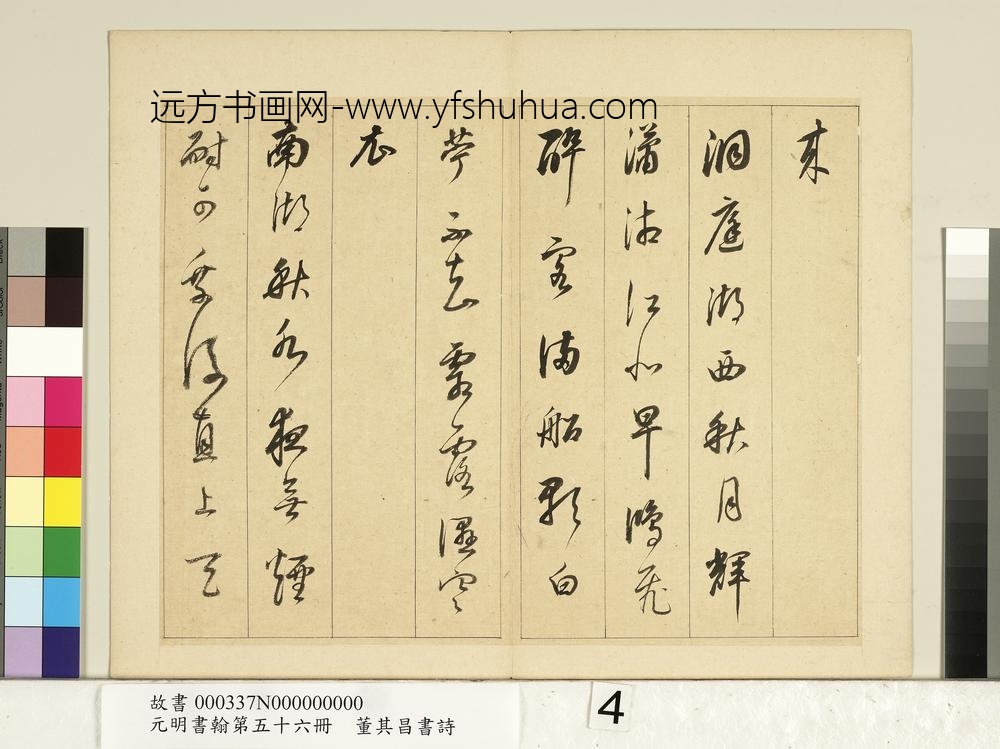 远方书画网-www.yfshuhua.com
來
洞庭湖西秋月輝
瀟湘江北早鴻飛
醉客滿船歌白
苧不知霜露濕寒
衣
南湖秋水夜無煙
耐可乘流直上天
故書 000337N000000000
元明書翰第五十六冊 董其昌書詩
4